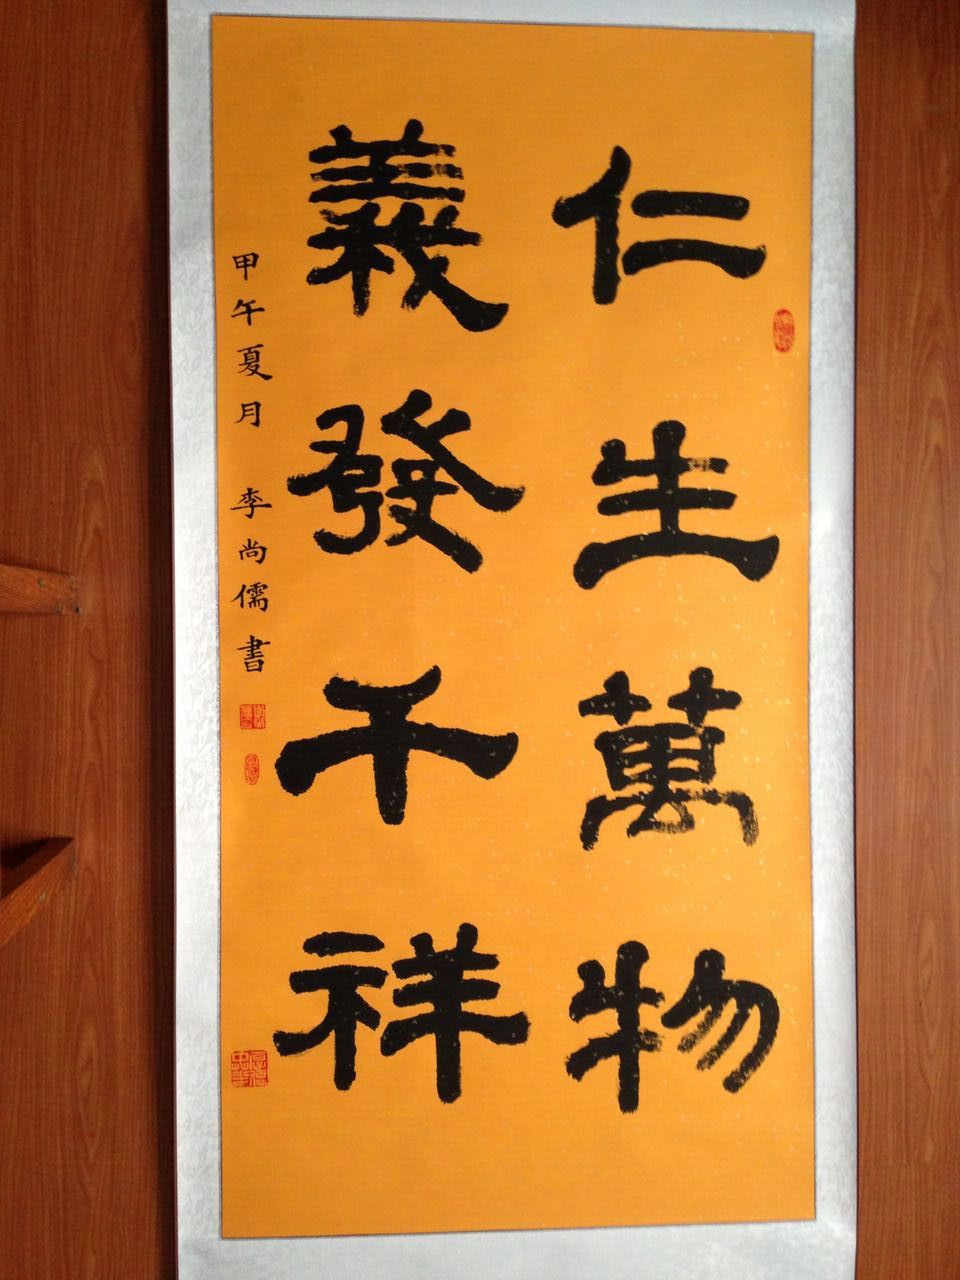 仁生萬物
義發千祥
甲午夏月 李尚儒書